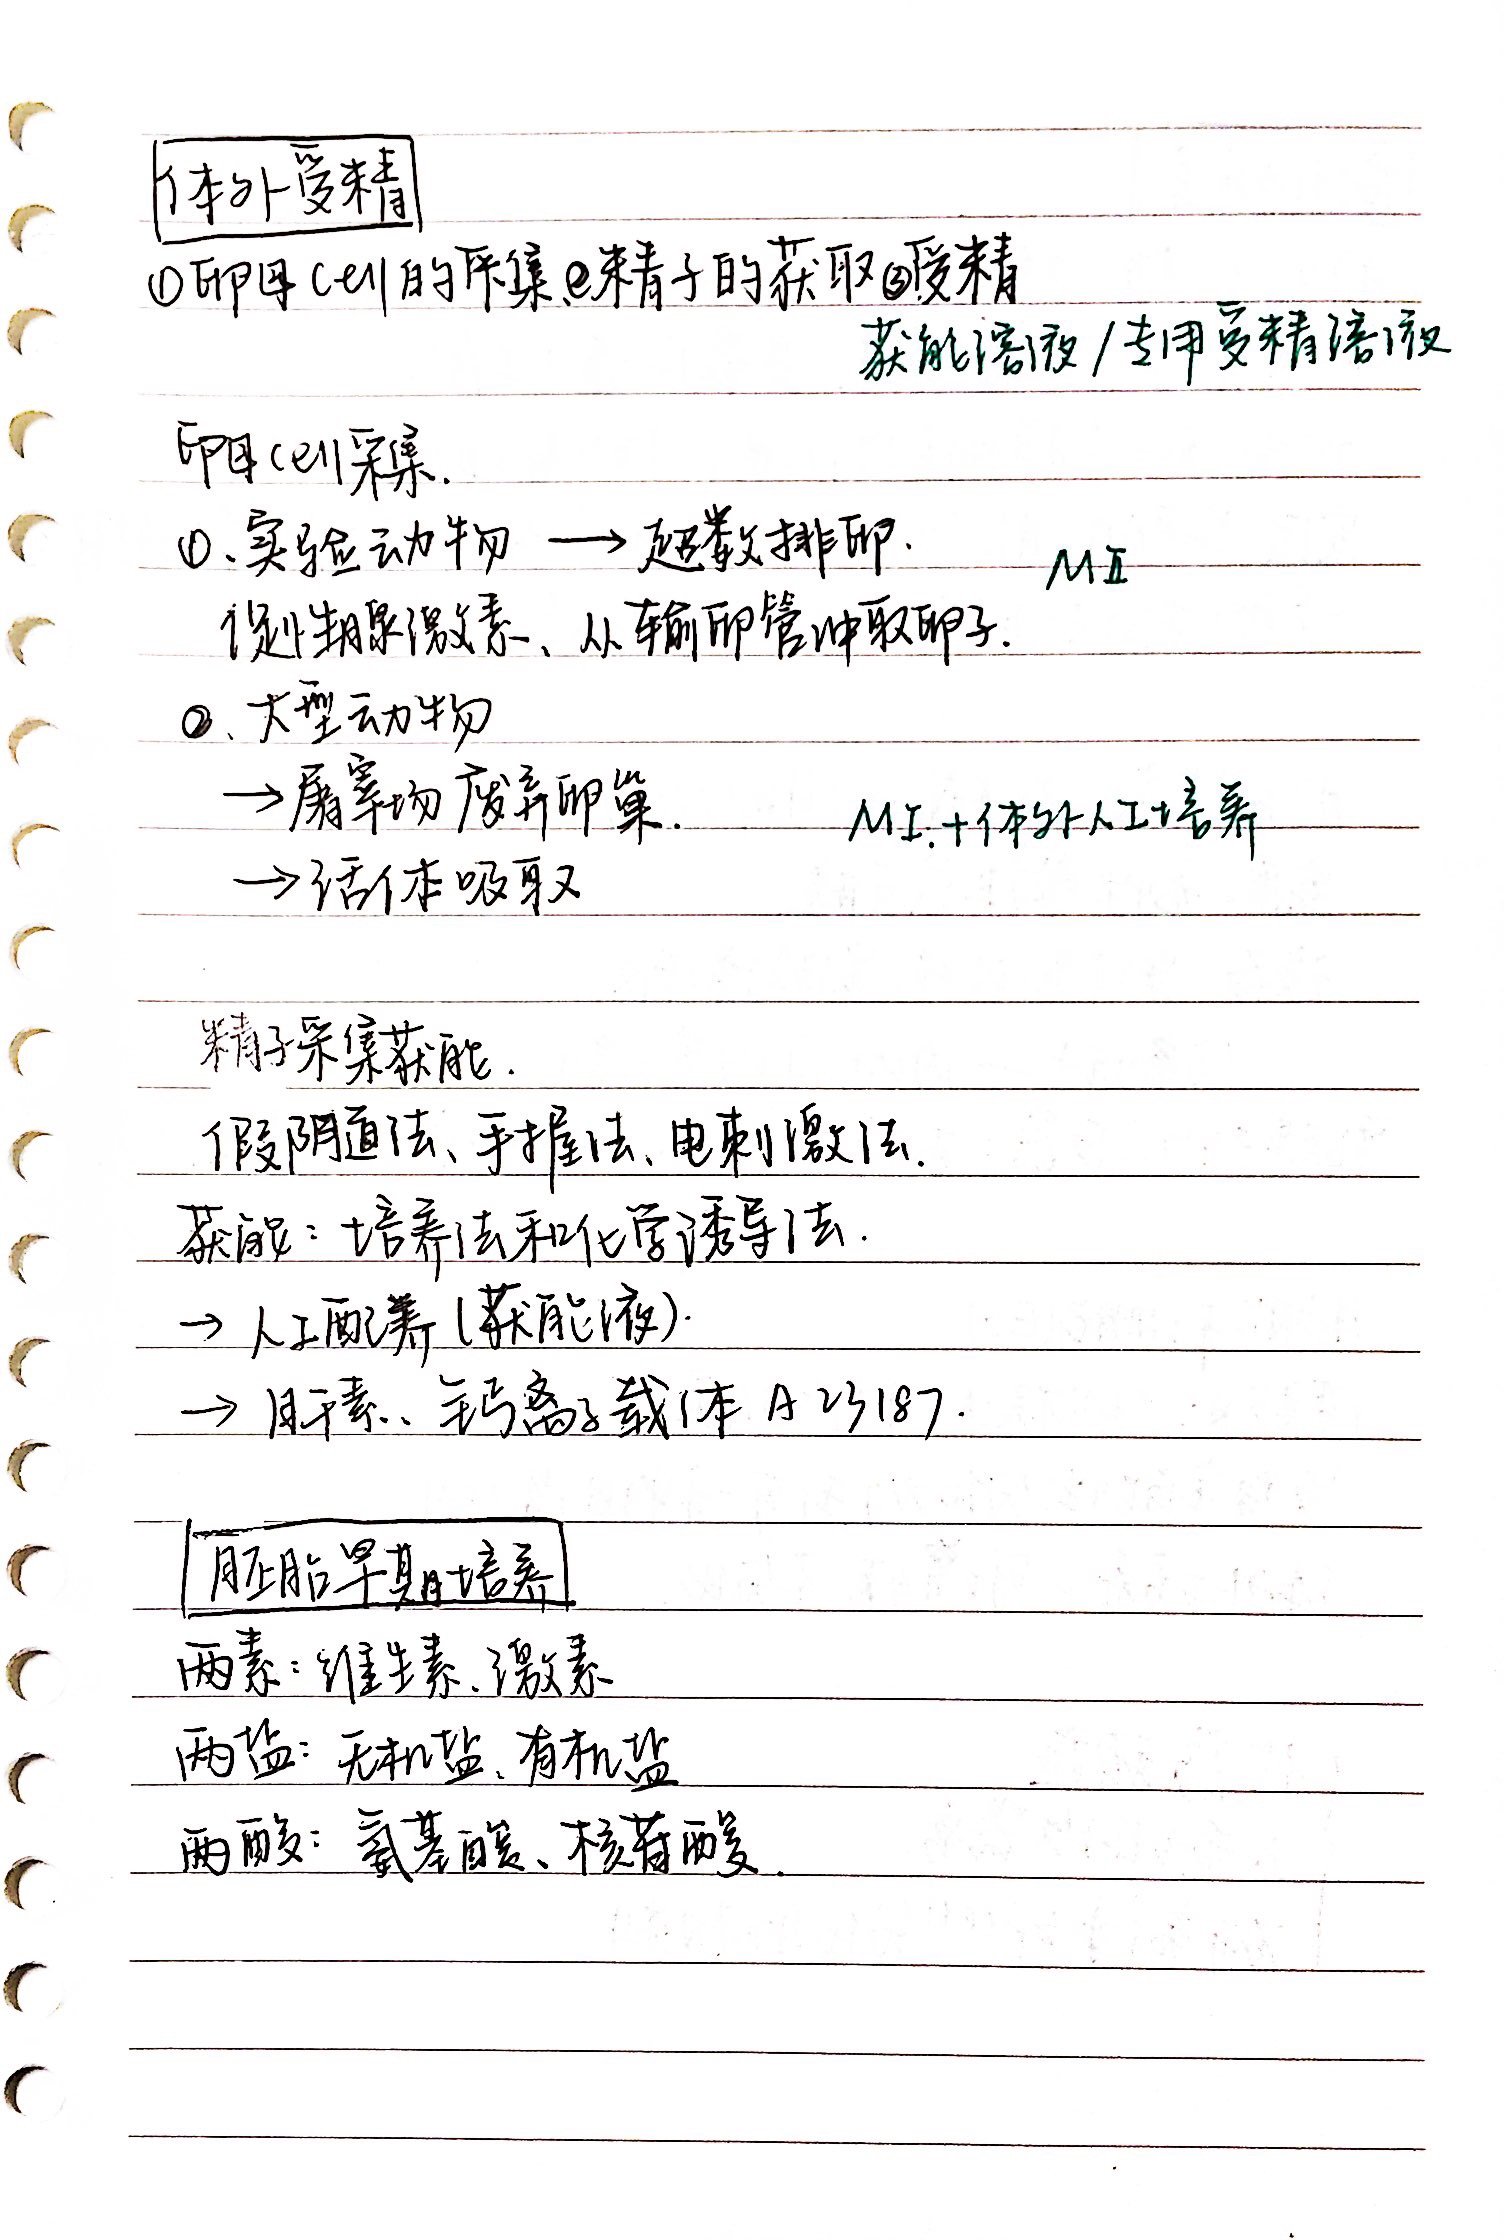 体外受精
①卵母cell的采集②精子的获取③受精
获能溶液/专用受精溶液
卵母cell采集.
①、实验动物 → 超数排卵.
MⅡ
促性腺激素、从输卵管冲取卵子.
②、大型动物
→屠宰场废弃卵巢.
MⅠ.+体外人工培养
→活体吸取
精子采集获能.
假阴道法、手握法、电刺激法.
获能：培养法和化学诱导法.
→ 人工配养(获能液).
→ 肝素、钙离子载体 A23187.
胚胎早期培养
两素：维生素、激素
两盐：无机盐、有机盐
两酸：氨基酸、核苷酸.